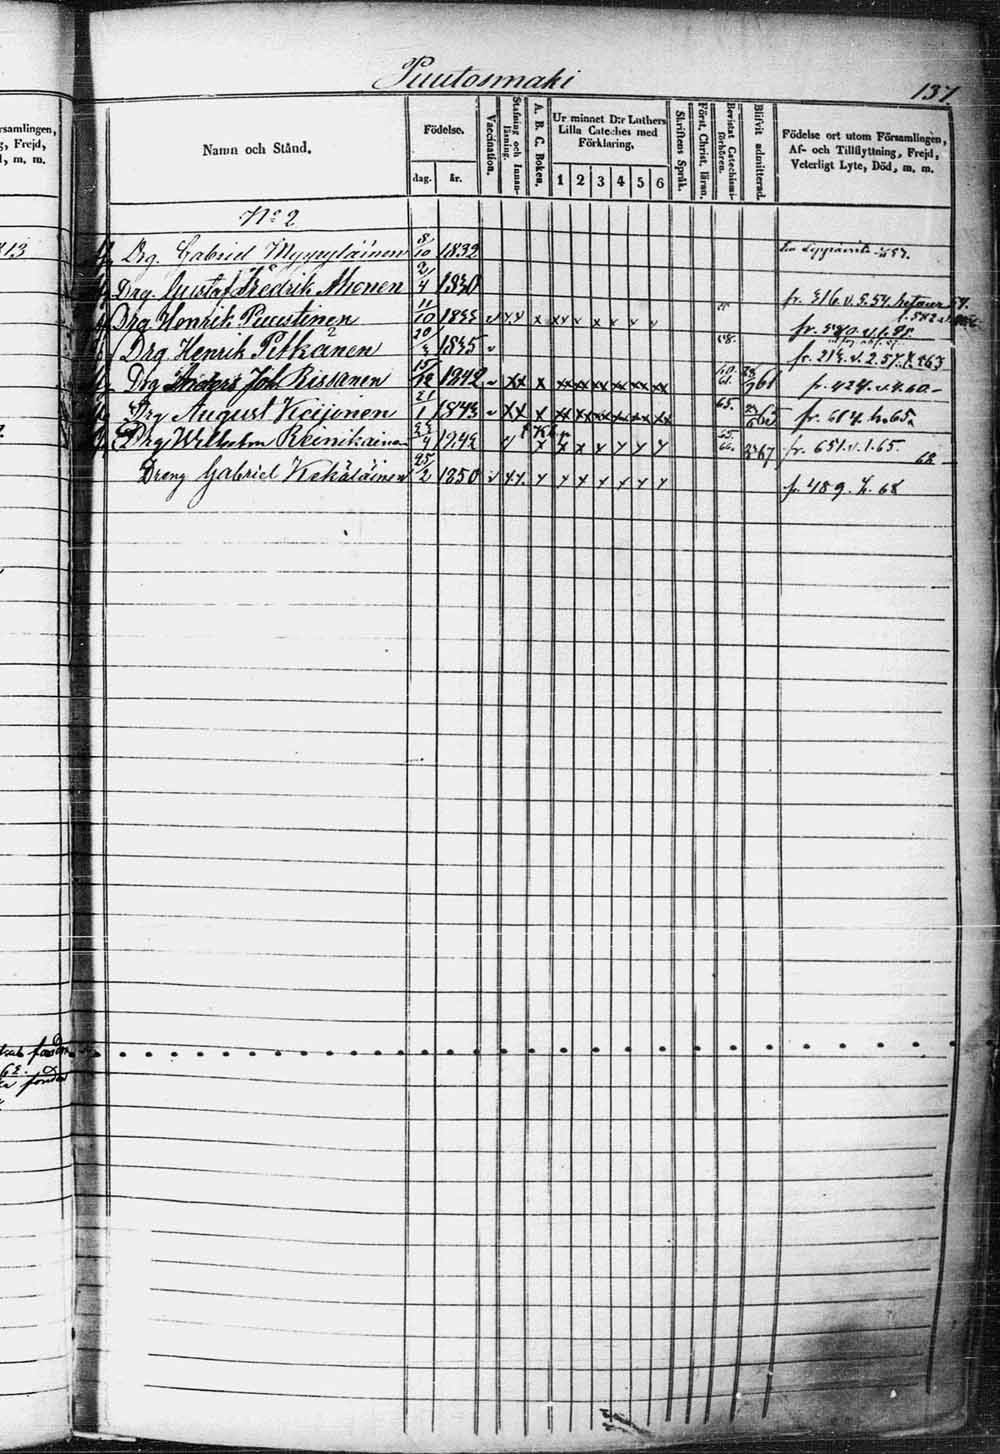 Puutosmaki
137
rsamlingen,
g, Frejd,
l, m. m.
Namn och Stånd.
Födelse.
dag. år.
Vaccination.
Stafning och Innan-läsning.
A. B. C. Boken.
Ur minnet D:r Luthers
Lilla Cateches med
Förklaring.
1 2 3 4 5 6
Skriftens Språk.
Först. Christ. läran.
Bevistat Catechismi-förhören.
Blifvit admitterad.
Födelse ort utom Församlingen,
Af- och Tillflyttning, Frejd,
Veterligt Lyte, Död, m. m.
No 2
13 Drg. Gabriel Myyryläinen 8/10 1832
Drg Gustaf Fredrik Ahonen 2/4 1830 fr. 316. v. 5. 54.
Drg Henrik Puustinen 11/10 1833 v x x x x x x x x fr. 580. v. 1. 95
Drg. Henrik Pitkänen 20/3 1835 v 58. fr. 213. v. 2. 57. X 63
Drg Anders Joh Rissanen 15/12 1842 v xx x xx xx xx xx xx xx 60. 61. fr. 424. v. 4. 60
Drg August Keijonen 21/1 1843 v xx x xx xx xx xx xx xx 65. fr. 604. h. 65.
Drg Wilhelm Reinikainen 23/4 1842 y x x x y y y y 65. 66. 67 fr. 651. v. 1. 65.
68
Dreng Gabriel Kekäläinen 25/2 1850 v y y. y y y y y y y fr. 489. h. 68